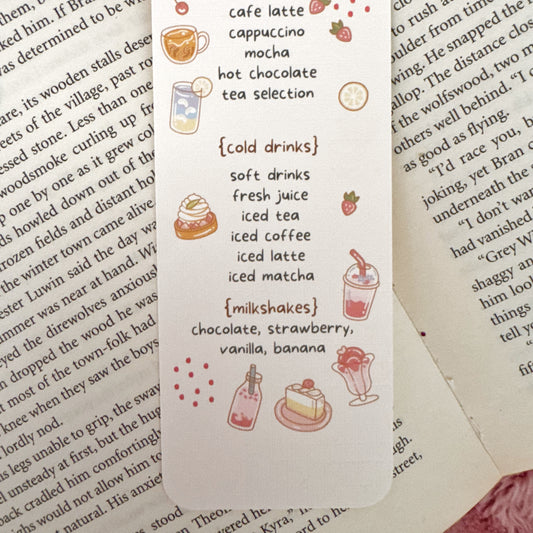 cafe latte
cappuccino
mocha
hot chocolate
tea selection
{cold drinks}
soft drinks
fresh juice
iced tea
iced coffee
iced latte
iced matcha
{milkshakes}
chocolate, strawberry,
vanilla, banana
ked him. If Bran
was determined to be
are, its wooden stalls deser
eets of the village, past ro
essed stone. Less than one
woodsmoke curling up fro
p one by one as it grew col
ds howled down out of the
rozen fields and distant hol
the winter town came alive
ester Luwin said the day wa
ummer was near at hand. Wi
eyed the direwolves anxious
n dropped the wood he was
t most of the town-folk had
knee when they saw the boys
lordly nod.
legs unable to grip, the sway
unsteady at first, but the hug
back cradled him comfortingly
ighs would not allow him to
natural. His anxiety
stood
Theon
wered her
"Kyra,"
rd to he
street,
to rush a
oulder from time
wing. He snapped the r
allop. The distance clos
of the wolfswood, two m
others well behind. "I c
as good as flying."
"I'd race you, b
joking, yet Bran c
underneath the s
"I don't want
had vanished
"Grey W
shaggy an
him look
things
tell yo
fif